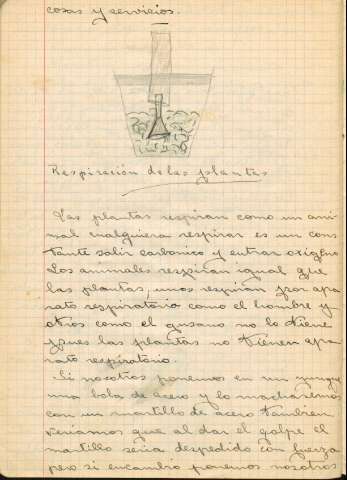 cosas y servicios.
Respiración de las plantas
Las plantas respiran como un ani
mal cualquiera respirar es un cons
tante salir carbonico y entrar oxigeno
Los animales respiran igual que
las plantas, unos respiran por apa
rato respiratorio como el hombre y
otros como el gusano no lo tiene
pues las plantas no tienen apa
rato respiratorio.
Si nosotros ponemos en un yunque
una bola de acero y lo machacamos
con un martillo de acero tambien
veriamos que al dar el golpe el
martillo seria despedido con fuerza
pero si encambio ponemos nosotros